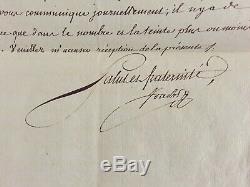 vous communique journellement; il n'y a de
que dans le nombre et la teinte plus ou moins
Veuillez m'accuser réception de la présente /.
Salut et fraternité,